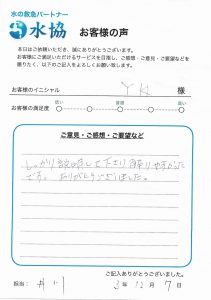 水の救急パートナー
水協 お客様の声
本日はご依頼いただき、誠にありがとうございます。
お客様にご満足いただけるサービスを目指し、ご感想・ご意見・ご要望などを
賜りたく、以下のご記入をよろしくお願い致します。
お客様のイニシャル YK 様
お客様の満足度 低い 普通 高い
ご意見・ご感想・ご要望など
しっかり説明して下さり 助かりました
です。ありがとうございました。
ご記入ありがとうございました。
担当: 井川 3年 12月 7日